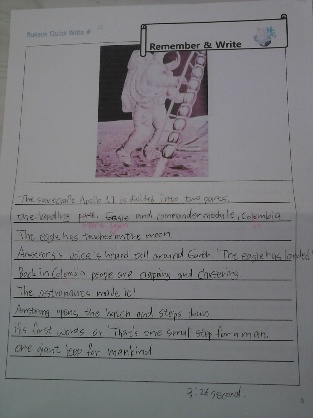 Bureau Quick Write #
Remember & Write
The spacecraft Apollo 11 is divided into two parts.
One landing part, Eagle and commander module, Columbia
The eagle has touched on the moon.
Amstrong's voice's heard all around Earth "The eagle has landed"
Back in Colombia people are clapping and cheering.
The astronauts made it!
Amstrong opens the hatch and steps down
His first words or "That's one small step for a man,
one giant leap for mankind
second